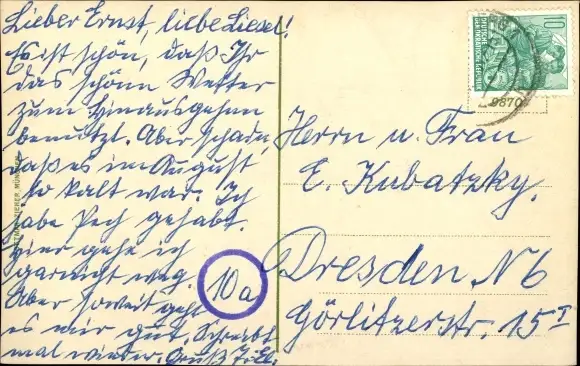 Lieber Ernst, liebe Liesel!
Es ist schön, daß Ihr
das schöne Wetter
zum Hinausgehen
benutzt. Aber schade,
daß es im August
so kalt war. Ich
habe Pech gehabt.
Hier gehe ich
garnicht weg.
Aber soweit geht
es mir gut. Schreibt
mal wieder. Gruß
10a
10
DEUTSCHE
DEMOKRATISCHE REPUBLIK
9870
Herrn u. Frau
E. Kubatzky,
Dresden N6
Görlitzerstr. 15 I